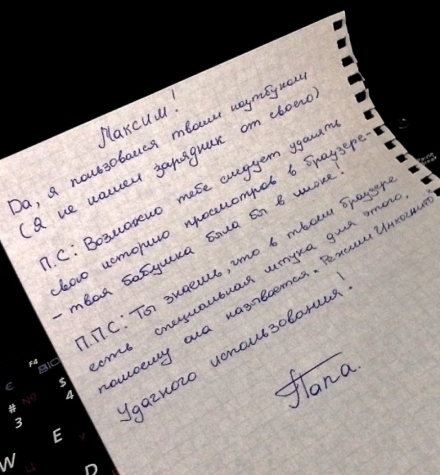 Максим!
Да, я пользовался твоим ноутбуком
(Я не нашел зарядник от своего)
П.С: Возможно тебе следует удалять
свою историю просмотров в браузере-
- твоя бабушка была бы в шоке!
П.П.С: Ты знаешь, что в твоем браузере
есть специальная штука для этого,
помоему она называется. Режим Инкогнито
Удачного использования!
Папа.
F4
BIO
€
$
4
#
3
№
W
Ц
E
У
D